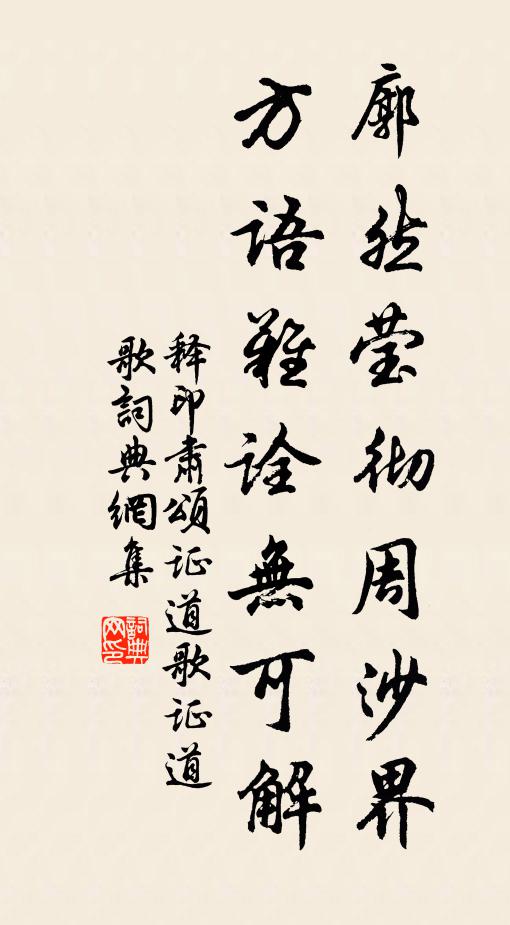 廓然莹彻周沙界
方語難詮無可解
释印肃頌证道歌证道
歌詞典網集
詞典
网印